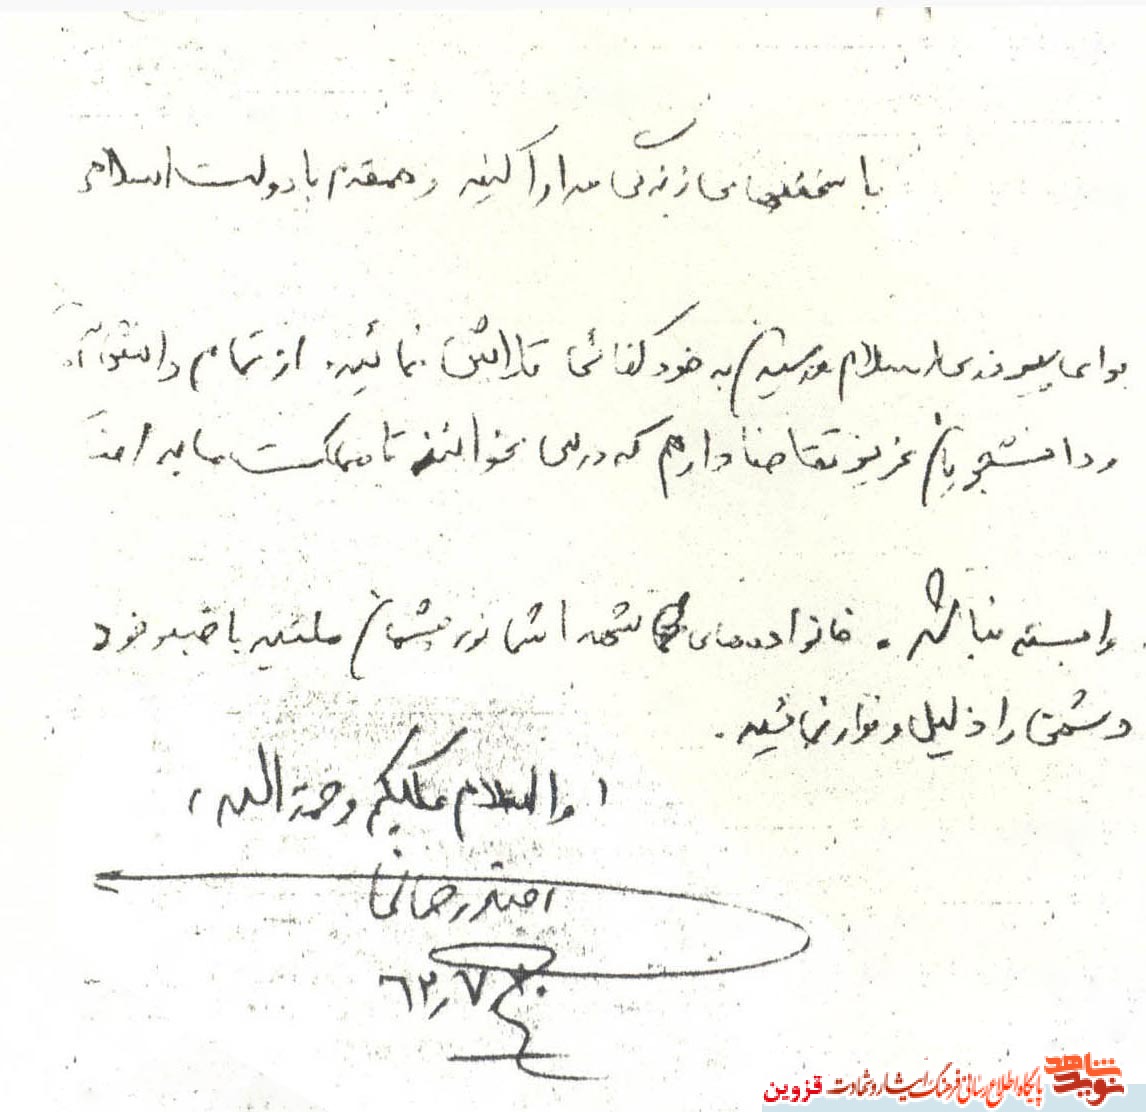 با سختیهای زندگی مدارا کنید و همقدم با دولت اسلام
برای پیروزی اسلام و رسیدن به خودکفائی تلاش نمائید. از تمام دانش آ
و دانشجویان عزیز تقاضا دارم که درس بخوانند تا مملکت ما به اجنـ
وابسته نباشد. خانواده‌های شهدا شما نور چشمان ملتید با صبر خود
دشمن را ذلیل و خوار نمائید.
والسلام علیکم و رحمة الله
رحمانی
۶۲/۷/
نوید شاهد
پایگاه اطلاع رسانی فرهنگ ایثار و شهادت قزوین